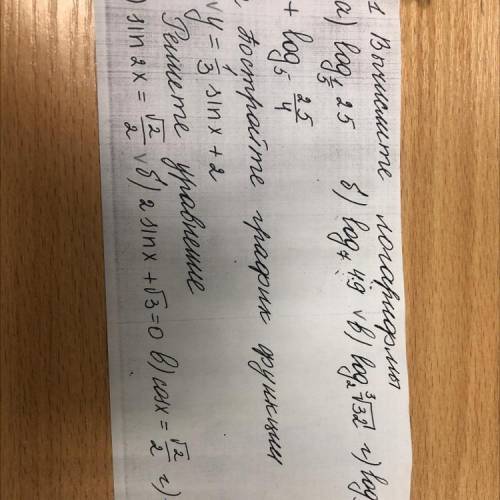 1 Вычислите логарифмы
а) log_{1/5} 25 б) log_7 49 √в) log_2 ∛32 г) log
+ log_5 25/4
Постройте график функции
√y = 1/3 sin x + 2
Решите уравнение
) sin 2x = √2/2 √б) 2 sin x + √3 = 0 в) cos x = √2/2 г)